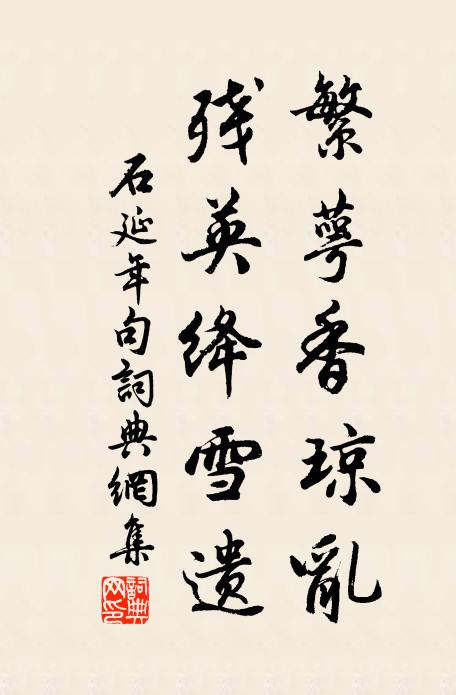 繁萼香琼亂
残英绛雪遗
石延年句詞典網集
詞典網印